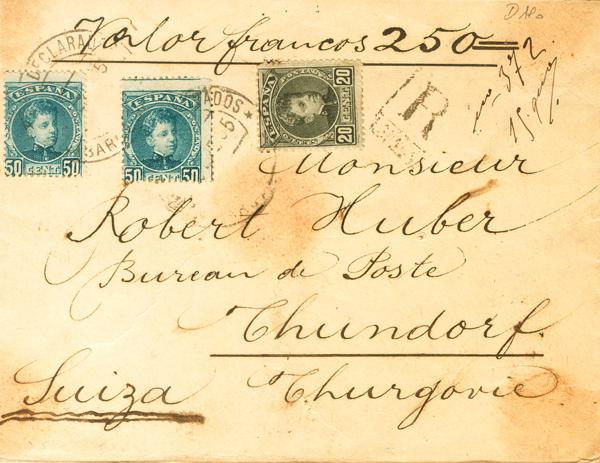 Valor francos 250=
DECLARADO
BAR
ESPAÑA
50 CENT. 50
ESPAÑA
50 CENT. 50
ADOS
ESPAÑA
20 CENT. 20
R
372
15
Monsieur
Robert Huber
Bureau de Poste
Thundorf.
Suiza Thurgovie